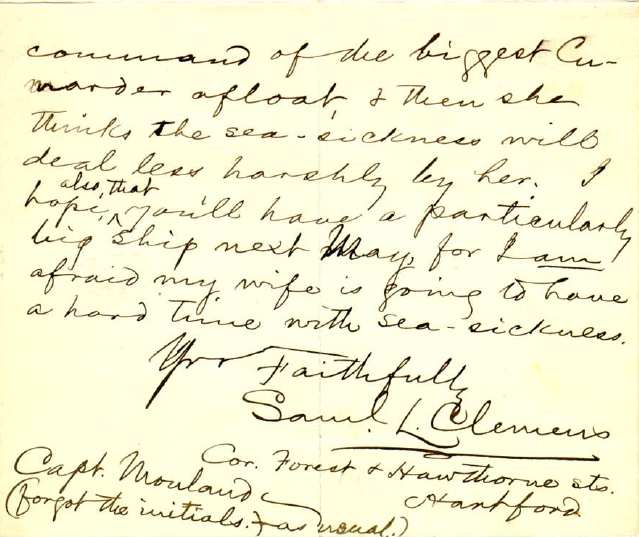 command of the biggest Cu-
narder afloat, & then she
thinks the sea-sickness will
deal less harshly by her. I
also, that
hope, ^ you'll have a particularly
big ship next May, for I am
afraid my wife is going to have
a hard time with sea-sickness.
Yrs Faithfully
Saml. L. Clemens
Cor. Forest & Hawthorne sts.
Hartford
Capt. Mouland
(forgot the initials.—as usual.)